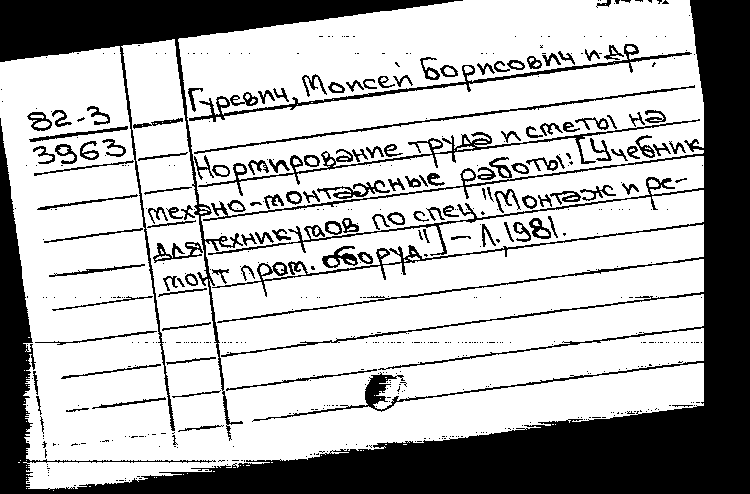 Гуревич, Моисей Борисович и др.
82-3
3963
Нормирование труда и сметы на
механо-монтажные работы: [Учебник
для техникумов по спец. "Монтаж и ре-
монт пром. оборуд."] – Л., 1981.